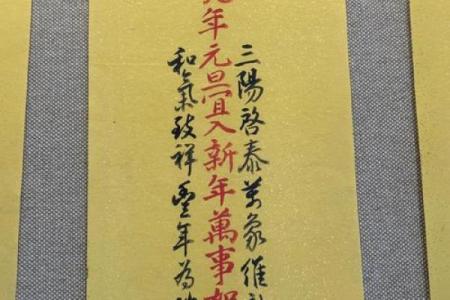 三陽啓泰萬象維
年元旦宜入新年萬事如
和氣致祥豐年為